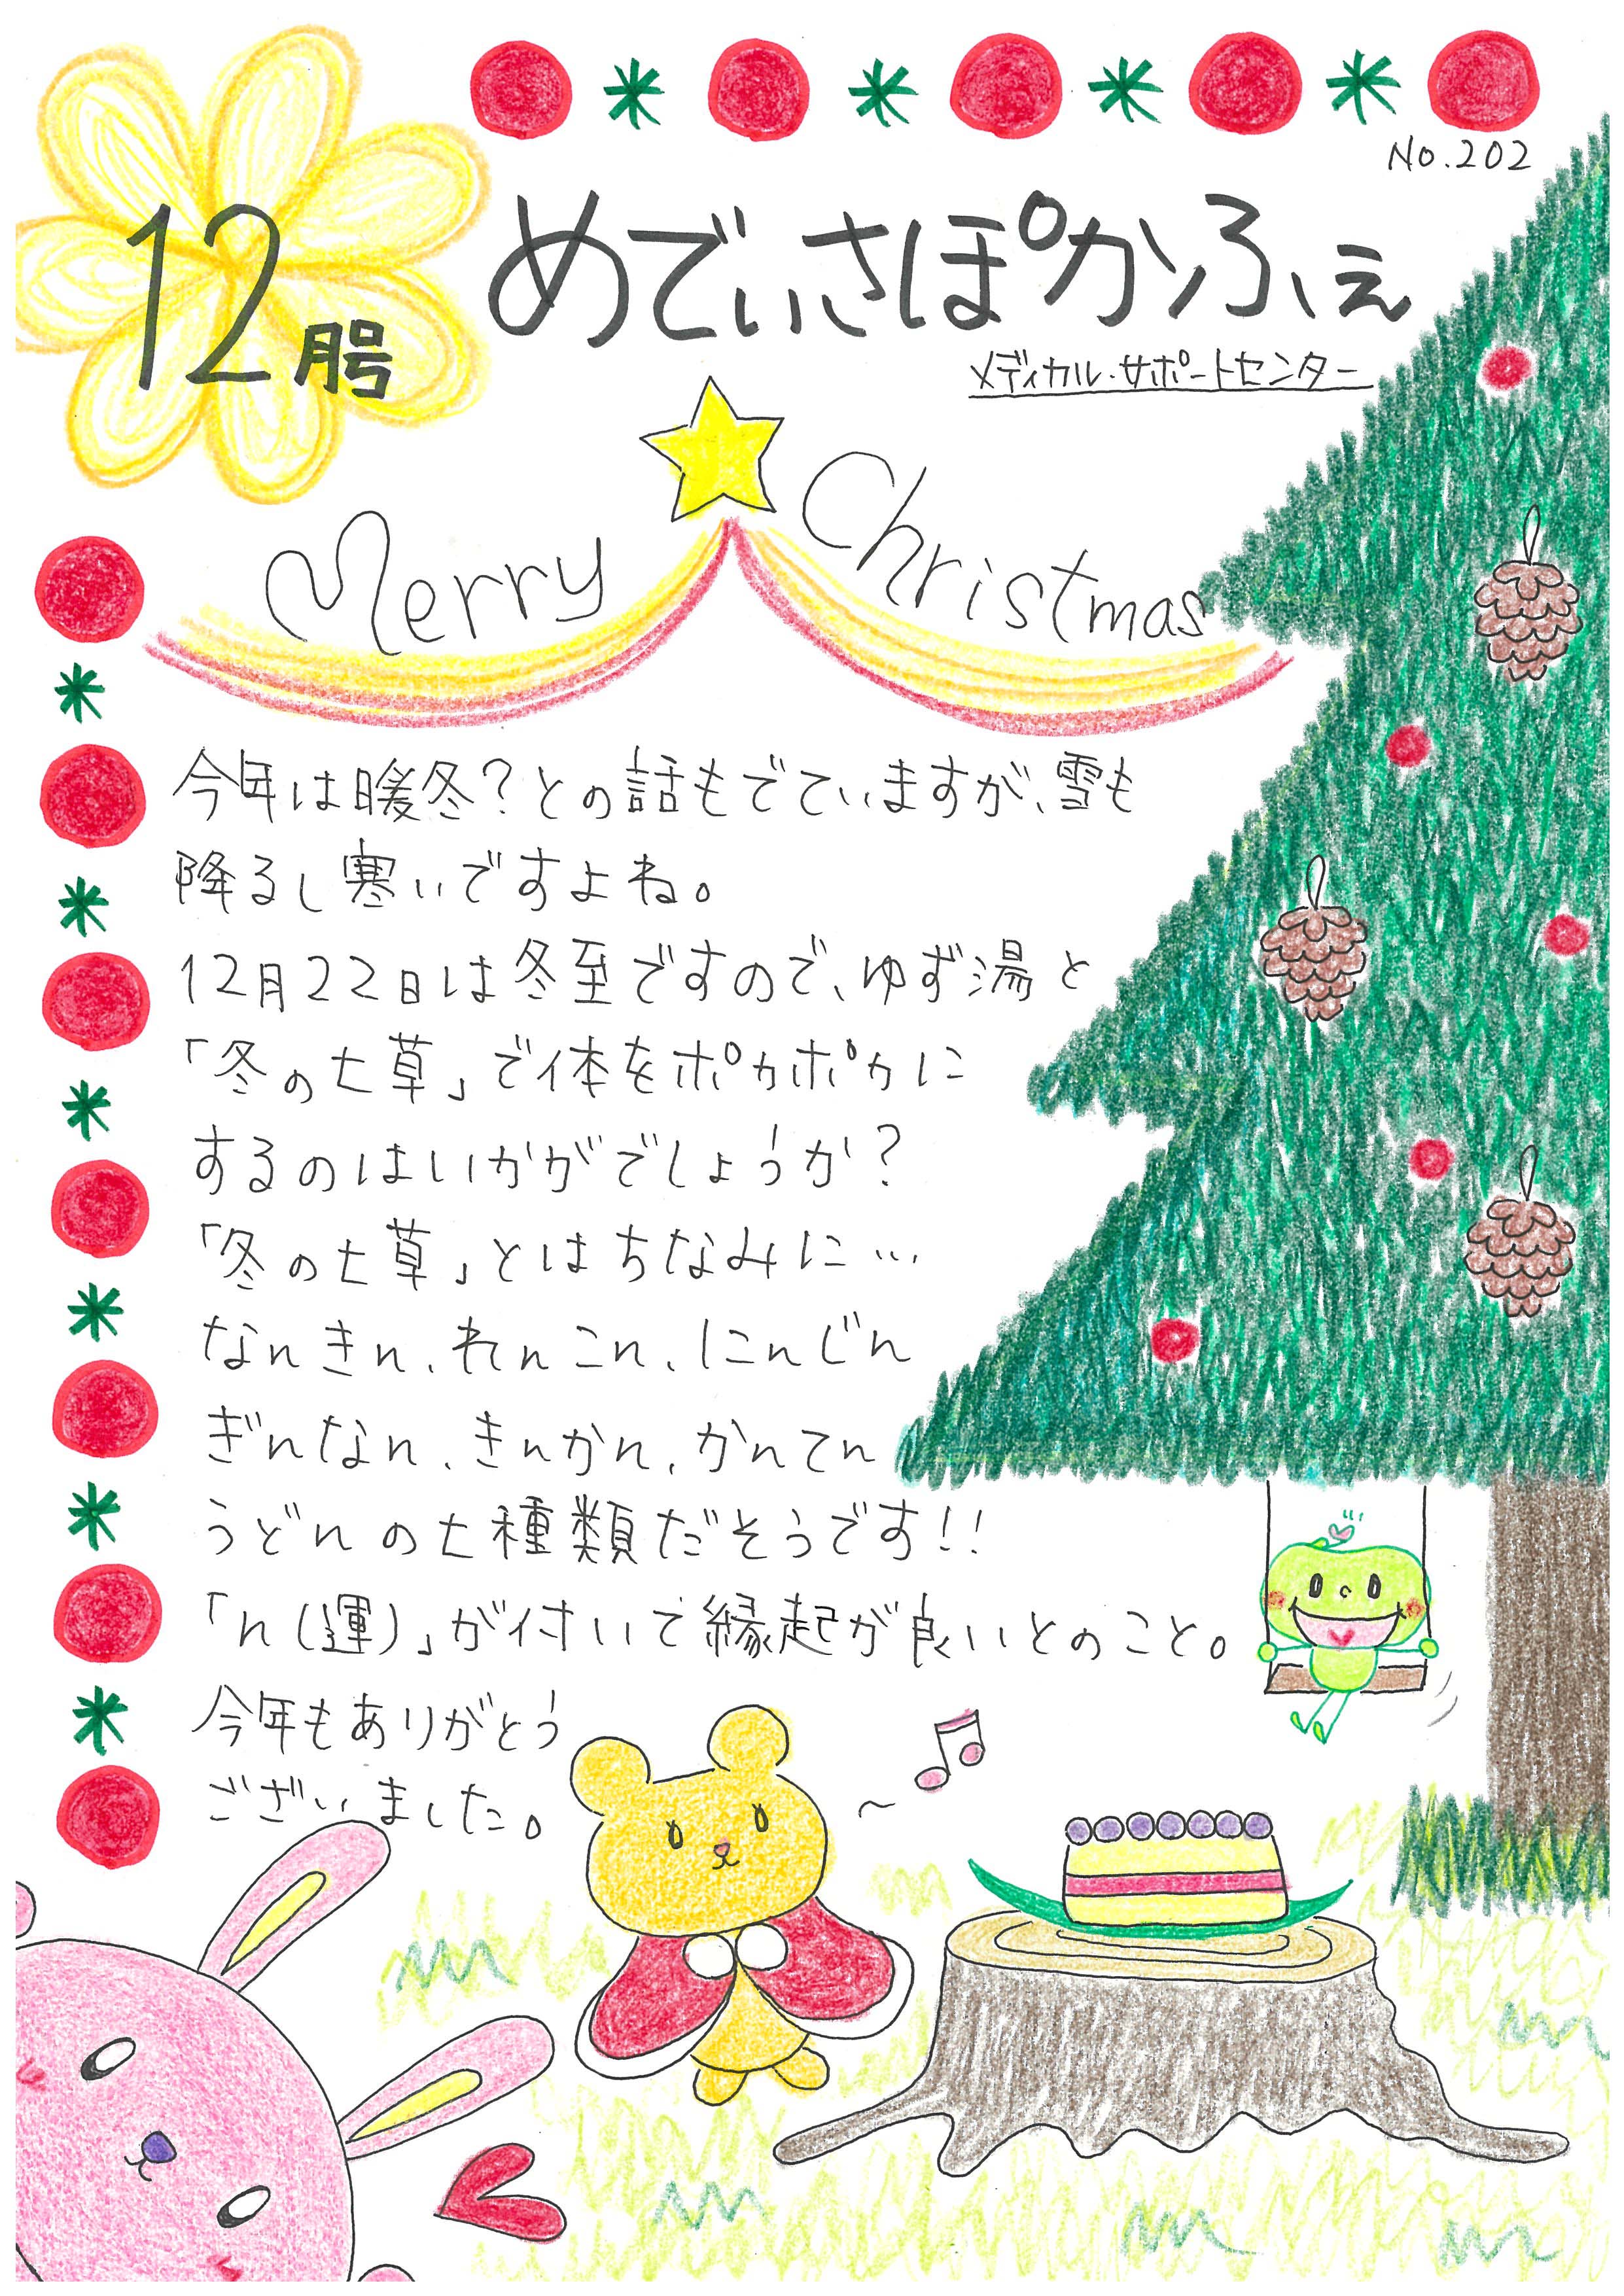 No.202
12月号
めでぃさぽかふぇ
メディカル・サポートセンター
Merry Christmas
今年は暖冬?との話もでていますが、雪も
降るし寒いですよね。
12月22日は冬至ですので、ゆず湯と
「冬の七草」で体をポカポカに
するのはいかがでしょうか?
「冬の七草」とはちなみに…
なんきん、れんこん、にんじん
ぎんなん、きんかん、かんてん
うどんの七種類だそうです!!
「ん(運)」が付いて縁起が良いとのこと。
今年もありがとう
ございました。